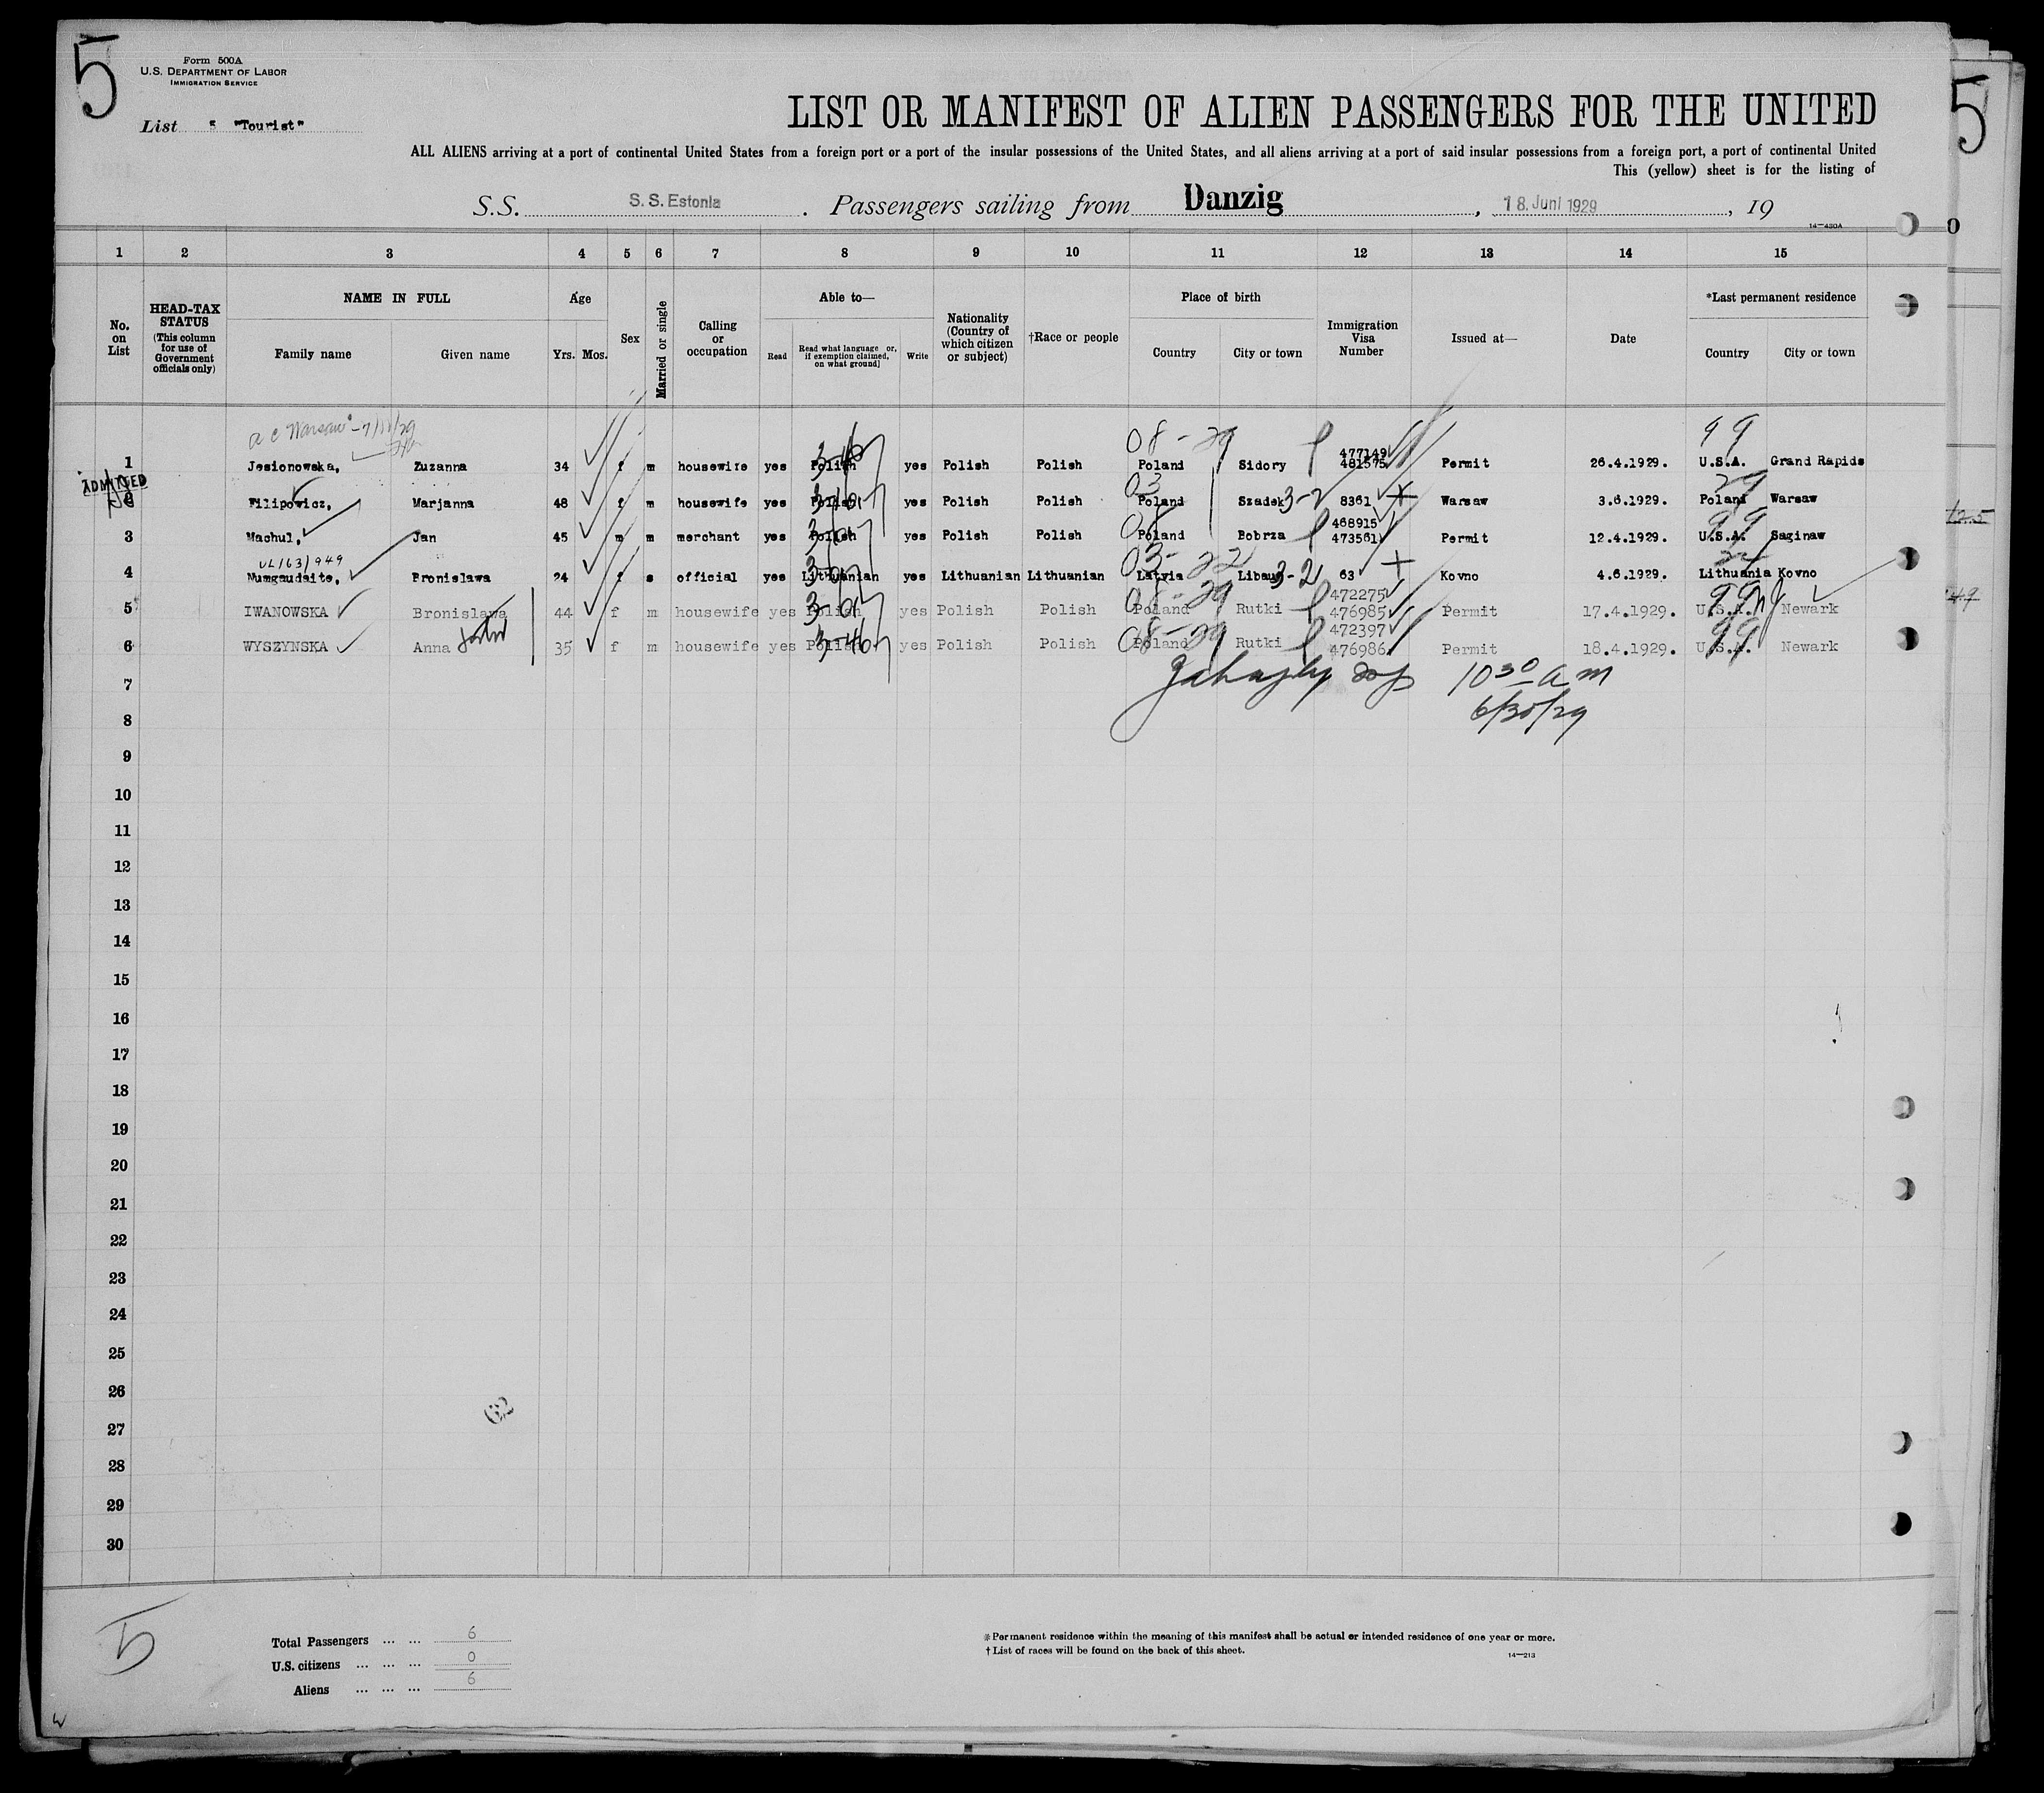 5
Form 500A
U.S. DEPARTMENT OF LABOR
IMMIGRATION SERVICE
List 5 "Tourist"
LIST OR MANIFEST OF ALIEN PASSENGERS FOR THE UNITED
ALL ALIENS arriving at a port of continental United States from a foreign port or a port of the insular possessions of the United States, and all aliens arriving at a port of said insular possessions from a foreign port, a port of continental United
This (yellow) sheet is for the listing of
S.S. S. S. Estonia . Passengers sailing from Danzig , 18. Juni 1929 , 19
14—430A
1 2 3 4 5 6 7 8 9 10 11 12 13 14 15
No. on List
HEAD-TAX STATUS
(This column for use of Government officials only)
NAME IN FULL
Family name Given name
Age
Yrs. Mos.
Sex
Married or single
Calling or occupation
Able to—
Read
Read what language or, if exemption claimed, on what ground]
Write
Nationality (Country of which citizen or subject)
†Race or people
Place of birth
Country City or town
Immigration Visa Number
Issued at—
Date
*Last permanent residence
Country City or town
08-29 99
477149
1 Jesionowska, Zuzanna 34 f m housewife yes Polish yes Polish Polish Poland Sidory 481575 Permit 26.4.1929. U.S.A. Grand Rapids
ADMITTED
03 29
2 Filipowicz, Marjanna 48 f m housewife yes Polish yes Polish Polish Poland Szadek 3-2 8361 Warsaw 3.6.1929. Poland Warsaw
468915 99
3 Machul, Jan 45 m m merchant yes Polish yes Polish Polish Poland Bobrza 473561 Permit 12.4.1929. U.S.A. Saginaw
03-22
4 Mumgaudaite, Bronislawa 24 f s official yes Lithuanian yes Lithuanian Lithuanian Latvia Libau 3-2 63 Kovno 4.6.1929. Lithuania Kovno
08-29 472275 99
5 IWANOWSKA Bronislawa 44 f m housewife yes Polish yes Polish Polish Poland Rutki 476985 Permit 17.4.1929. U.S.A. Newark
08-29 472397 99
6 WYSZYNSKA Anna 35 f m housewife yes Polish yes Polish Polish Poland Rutki 476986 Permit 18.4.1929. U.S.A. Newark
10 30 a m
7
6/30/29
8
9
10
11
12
13
14
15
16
17
18
19
20
21
22
23
24
25
26
27
28
29
30
5
Total Passengers ... ... 6
U.S. citizens ... ... ... 0
Aliens ... ... ... 6
*Permanent residence within the meaning of this manifest shall be actual or intended residence of one year or more.
†List of races will be found on the back of this sheet.
14—213
5